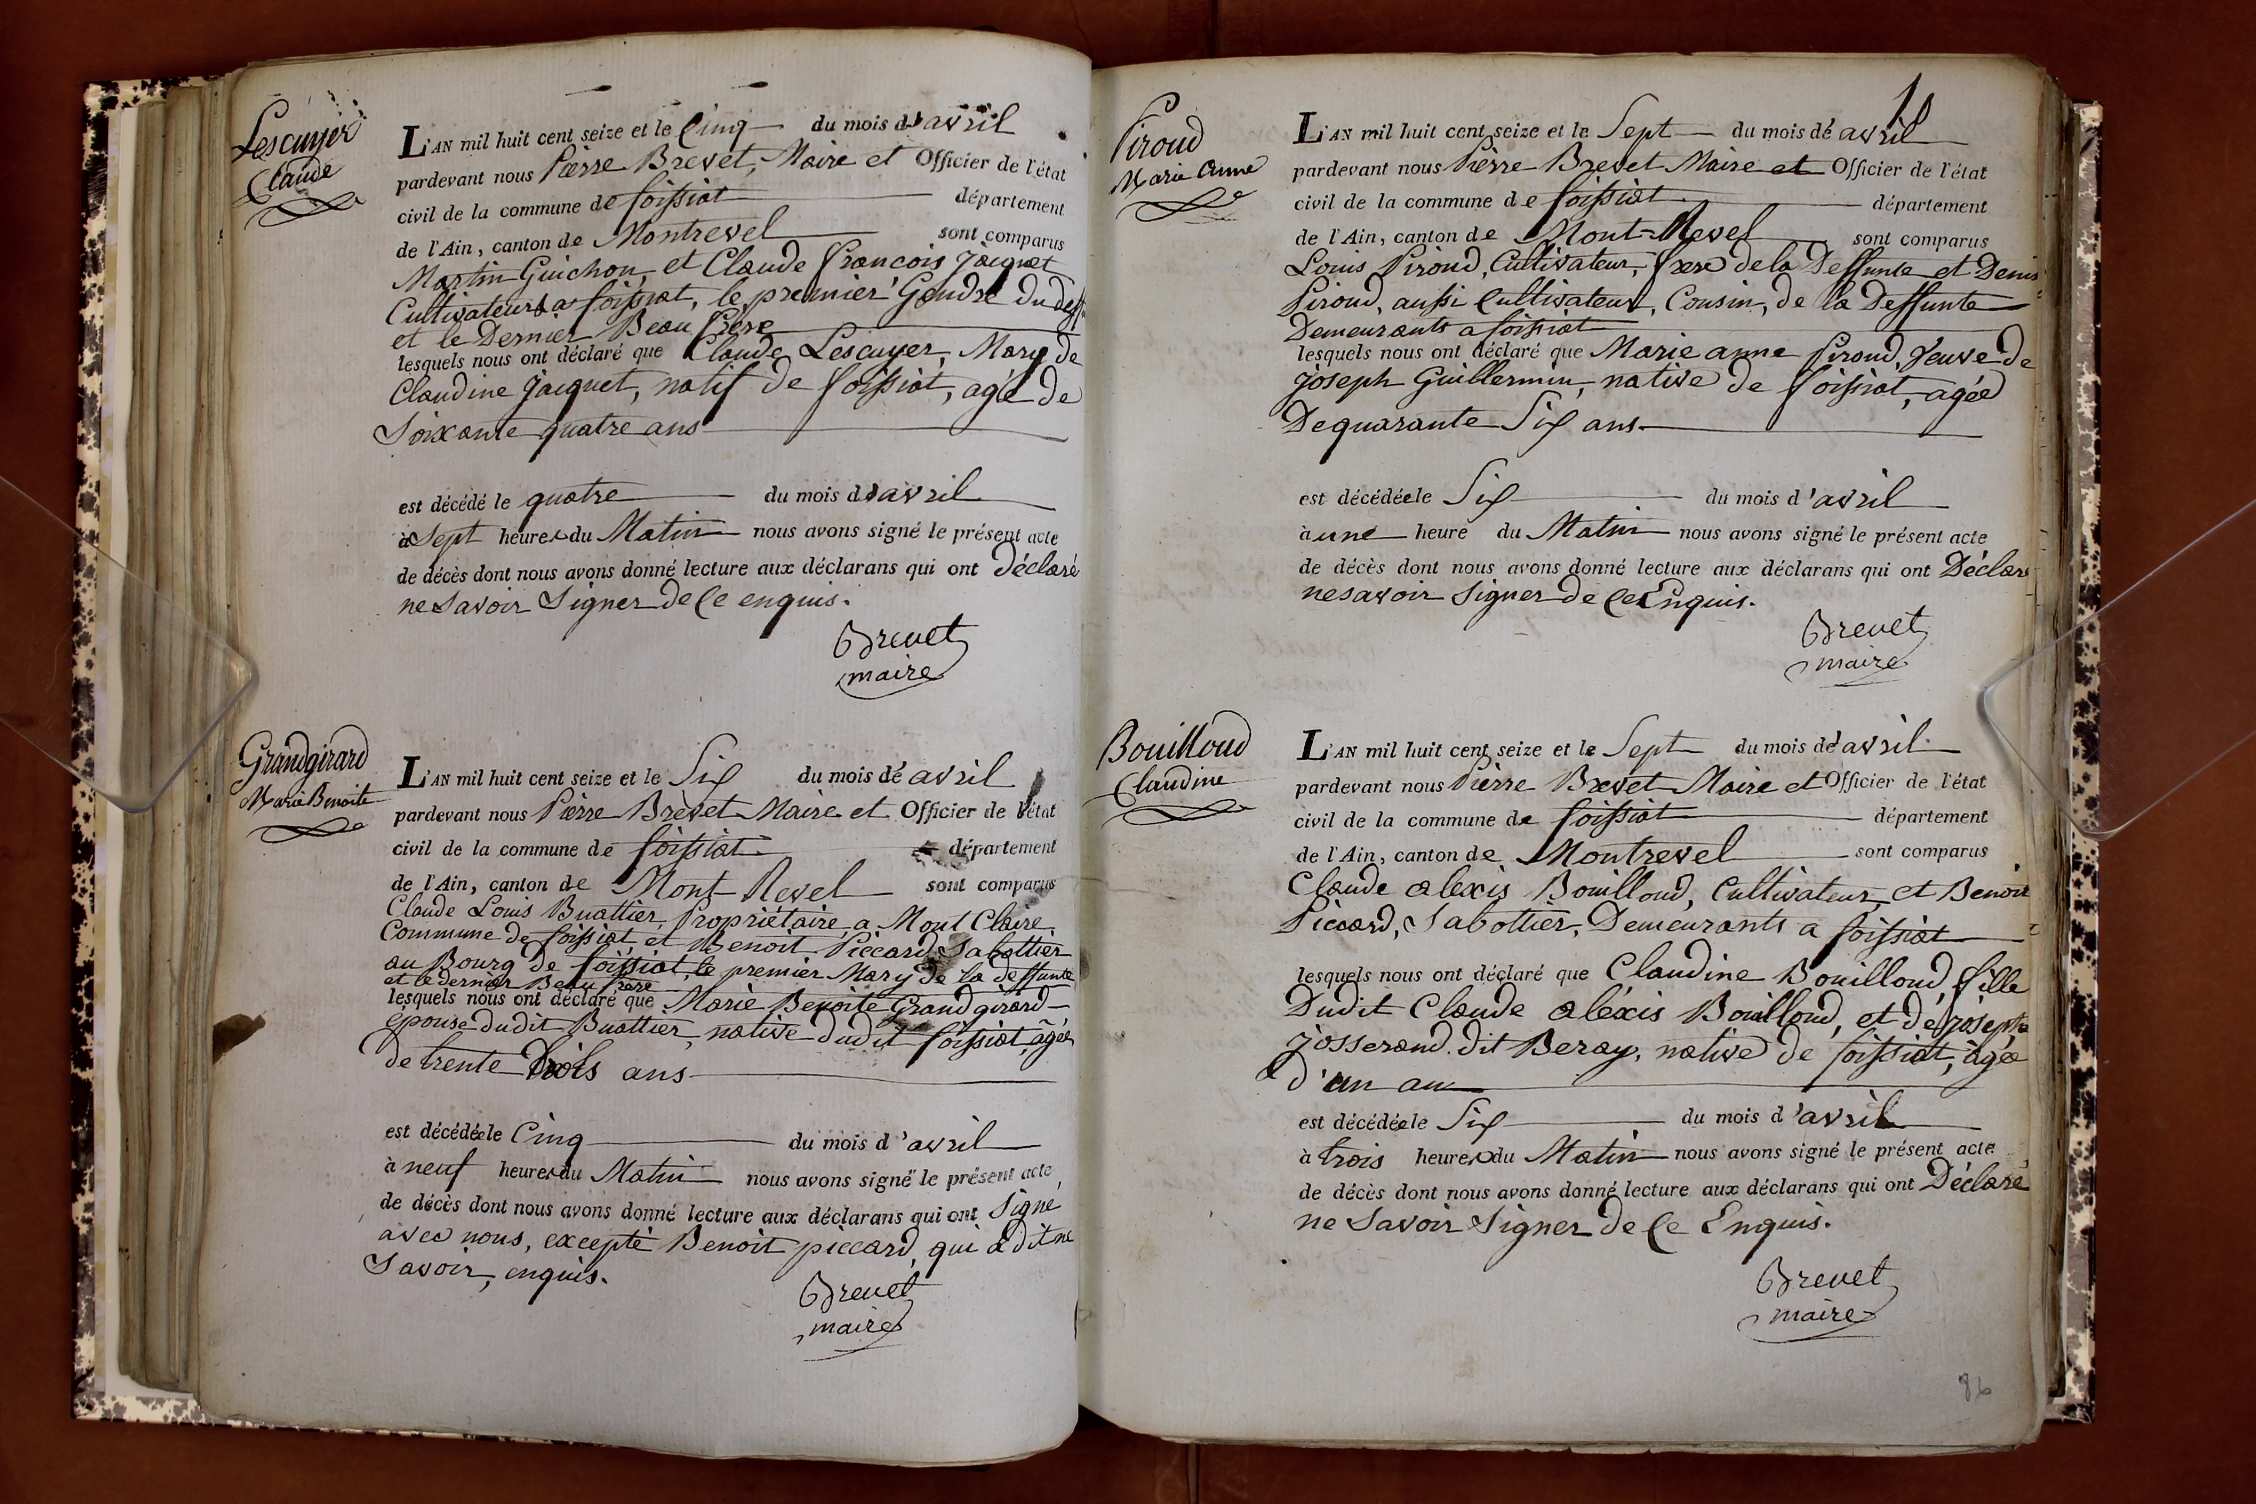 Lescuyer
Claude
L'AN mil huit cent seize et le Cinq du mois d'avril
pardevant nous Pierre Brevet, Maire et Officier de l'état
civil de la commune de foissiat département
de l'Ain, canton de Montrevel sont comparus
Martin Guichon, et Claude francois Jacquet
Cultivateurs a foissiat, le premier Gendre du deff
et le Dernier Beau frere
lesquels nous ont déclaré que Claude Lescuyer, Mary de
Claudine Jacquet, natif de foissiat, agé de
Soixante quatre ans
est décédé le quatre du mois d'avril
à Sept heures du Matin nous avons signé le présent acte
de décès dont nous avons donné lecture aux déclarans qui ont Déclaré
ne Savoir Signer de Ce enquis.
Brevet
maire
Grandgirard
Marie Benoite
L'AN mil huit cent seize et le Six du mois dé avril
pardevant nous Pierre Brevet Maire et Officier de l'état
civil de la commune de foissiat département
de l'Ain, canton de Mont-Revel sont comparus
Claude Louis Buattier, Propriétaire a Mont Claire,
Commune de foissiat et Benoit Piccard Sabottier
au Bourg de foissiat, le premier Mary de la deffunte
et le dernier Beau frere
lesquels nous ont déclaré que Marie Benoite Grandgirard
epouse dudit Buattier, native dudit foissiat, agée
de trente trois ans
est décédée le Cinq du mois d'avril
à neuf heures du Matin nous avons signé le présent acte
de décès dont nous avons donné lecture aux déclarans qui ont Signé
avec nous, excepté Benoit piccard, qui a dit ne
Savoir, enquis.
Brevet
maire
Piroud
Marie Anne
L'AN mil huit cent seize et le Sept du mois dé avril
pardevant nous Pierre Brevet Maire et Officier de l'état
civil de la commune de foissiat département
de l'Ain, canton de Mont-Revel sont comparus
Louis Piroud, Cultivateur, frere de la Deffunte et Denis
Piroud, aussi Cultivateur, Cousin, de la Deffunte
Demeurants a foissiat
lesquels nous ont déclaré que Marie anne Piroud, Veuve de
Joseph Guillermin, native de foissiat, agée
De quarante Six ans
est décédée le Six du mois d'avril
à une heure du Matin nous avons signé le présent acte
de décès dont nous avons donné lecture aux déclarans qui ont Déclaré
ne savoir Signer de Ce Enquis.
Brevet
maire
Bouilloud
Claudine
L'AN mil huit cent seize et le Sept du mois dé avril
pardevant nous Pierre Brevet Maire et Officier de l'état
civil de la commune de foissiat département
de l'Ain, canton de Montrevel sont comparus
Claude alexis Bouilloud, Cultivateur, et Benoit
Piccard, Sabottier, Demeurants a foissiat
lesquels nous ont déclaré que Claudine Bouilloud, fille
Dudit Claude alèxis Bouilloud, et de josephte
Josserand dit Beray, native de foissiat, agée
d'un an
est décédée le Six du mois d'avril
à trois heures du Matin nous avons signé le présent acte
de décès dont nous avons donné lecture aux déclarans qui ont Déclaré
ne Savoir Signer de Ce Enquis.
Brevet
maire
86